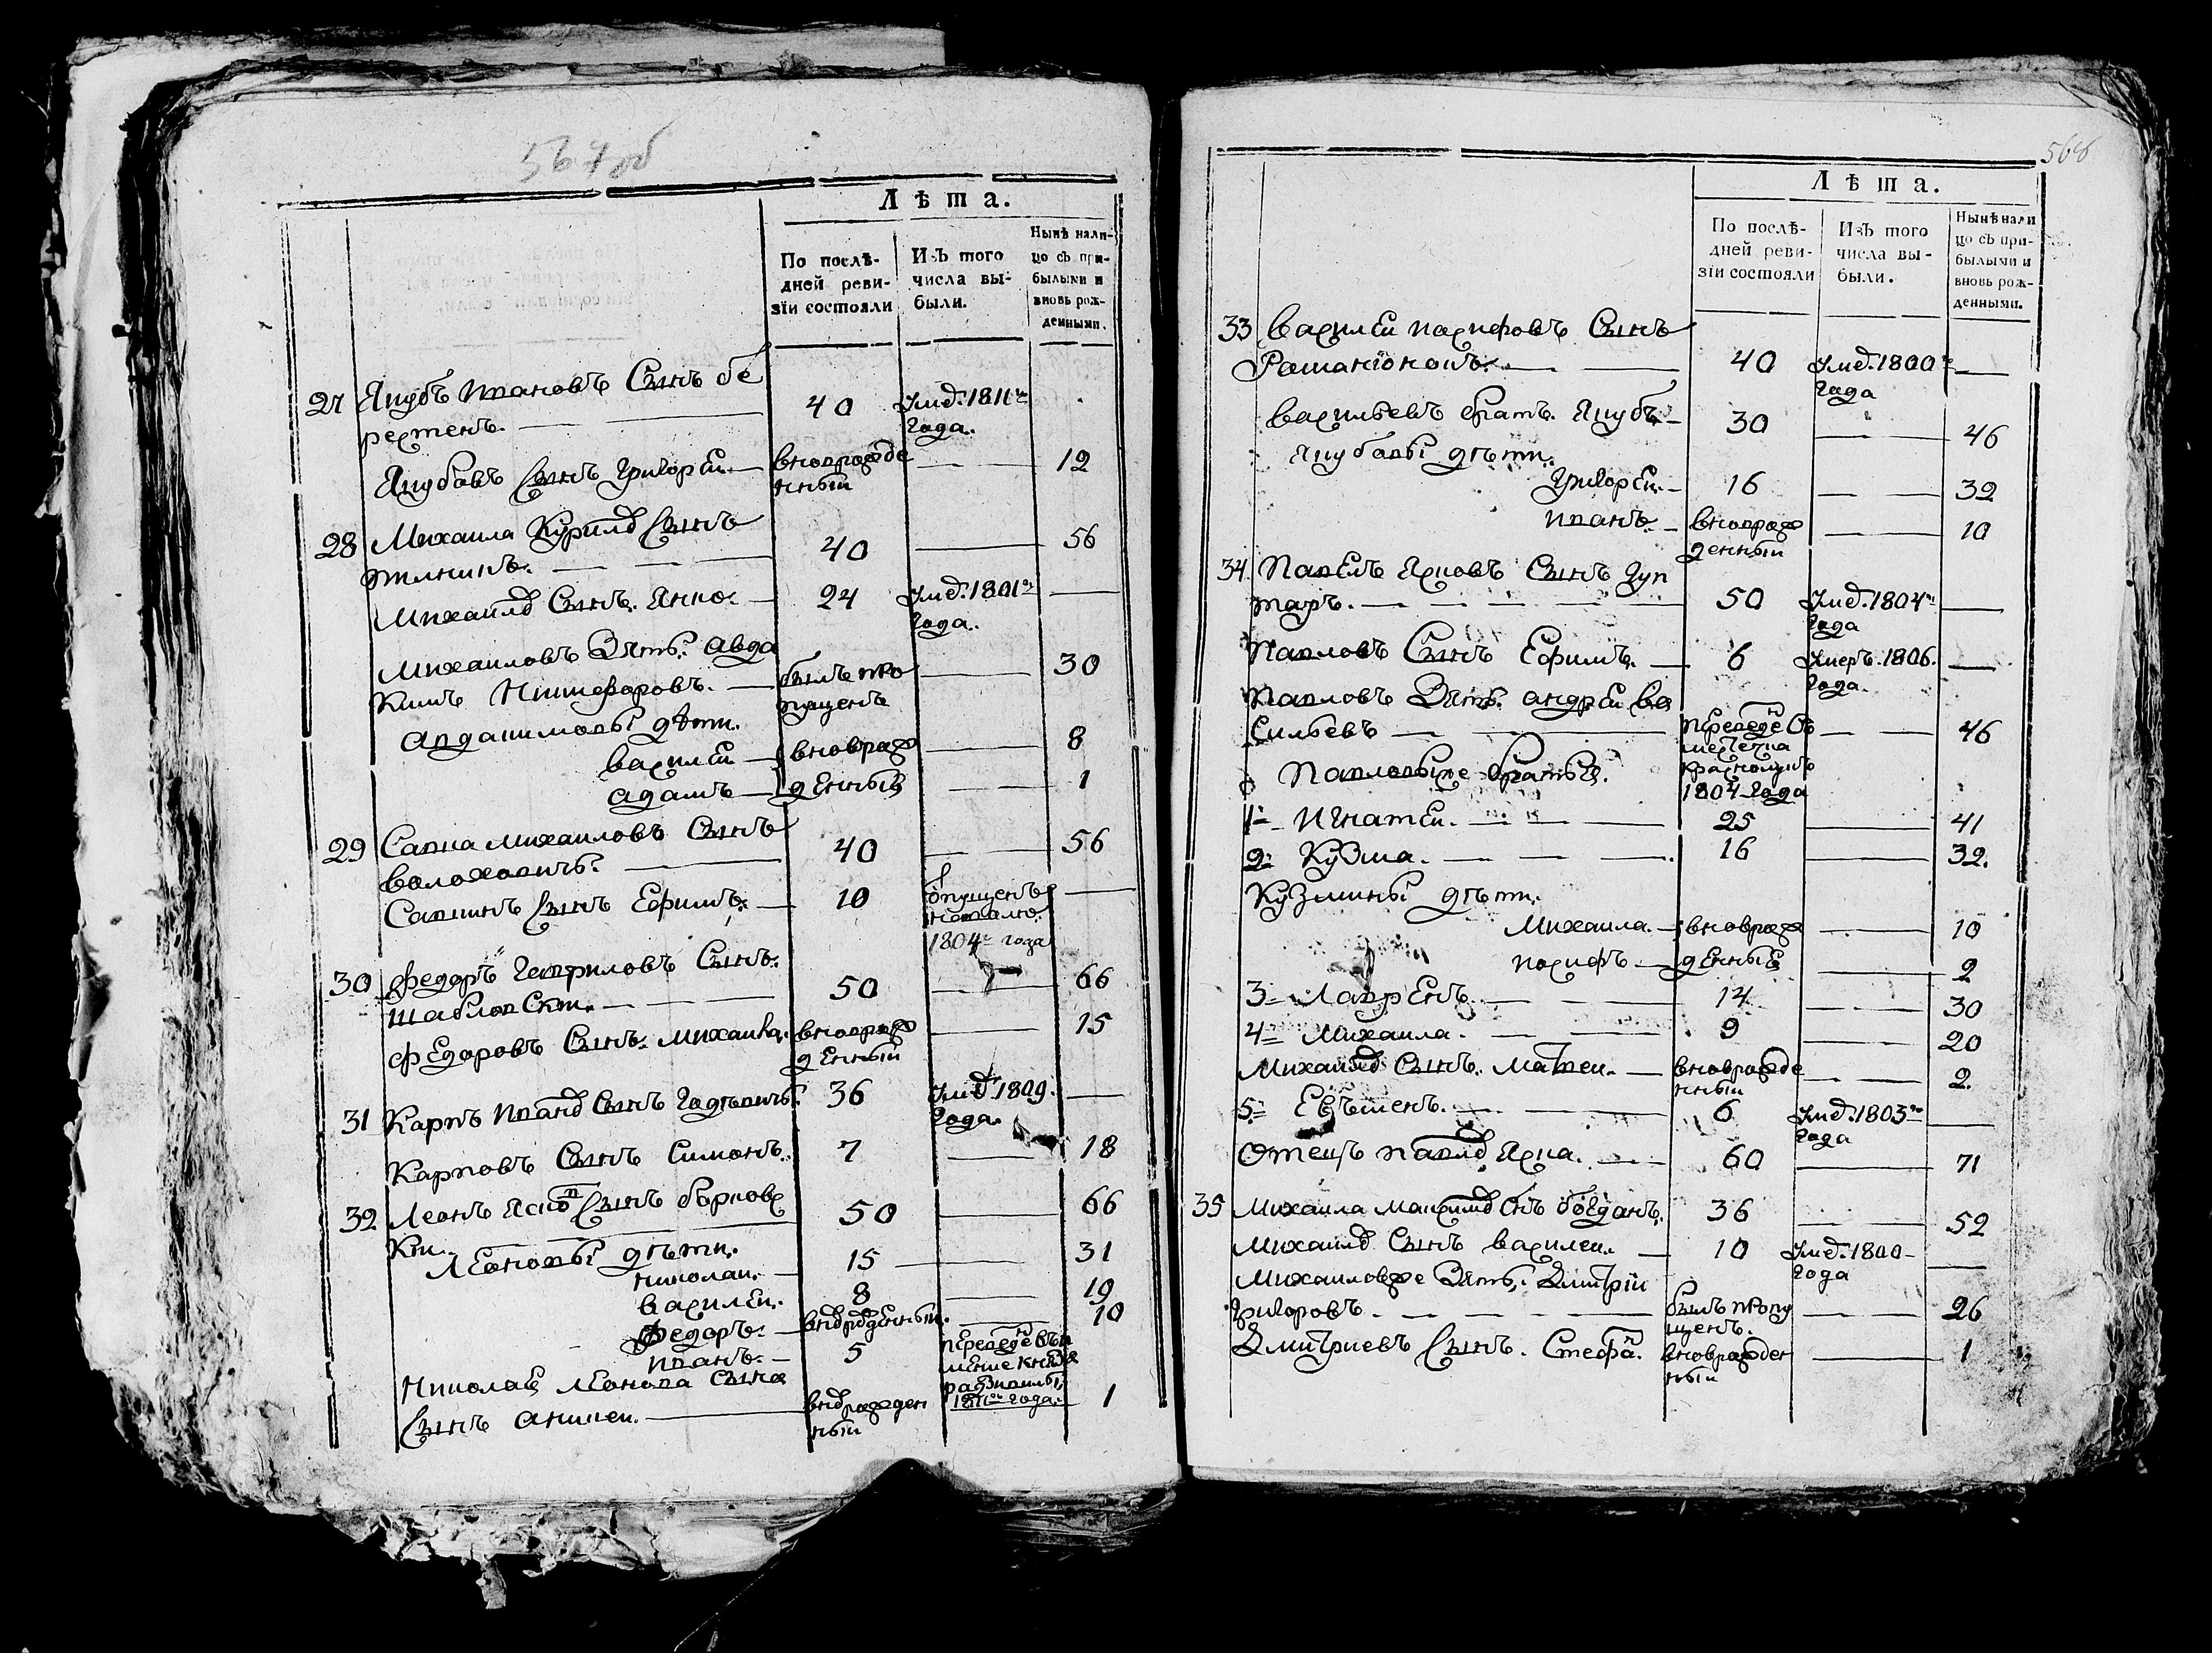 567 об
Лѣта.
По послѣ-
дней реви-
зїи состояли
Изъ того
числа вы-
были.
Нынѣ нали-
цо съ при-
былыми и
вновь рож-
денными.
27 Якубъ Ивановъ Сынъ бе
рестенъ. — 40 Умд. 1811го
Года.
Якубовъ Сынъ Григорей — вновърожде
нный — 12
28 Михаила Курилд Сынъ
— 40 — 56
Михайлд Сынъ Янко. — 24 Умд. 1801го
Года. —
Михаиловъ Зять: авда
кимъ Никифоровъ. — былъ про
пущенъ — 30
авдакимовы дѣти.
василей — вноврож — 8
адамъ — денные — 1
29 Савка Михаиловъ Сынъ
волоховичъ. — 40 — 56
Савкинъ Сынъ Ефимъ. — 10 —
1804го года
30 Федоръ Гавриловъ Сынъ
шабловски. — 50 — 66
Федоровъ Сынъ Михаила. вноврож
денный — 15
31 Карпъ Иванд Сынъ Гадѣвичъ. 36 Умд. 1809.
Года. —
Карповъ Сынъ Симонъ. 7 — 18
32 Леонъ Сынъ борковс
ки. — 50 — 66
Леоновы дѣти.
николаи. — 15 — 31
василеи. 8 — 19
Федоръ. — внврожденный. — 10
иванъ. — 5 переведенъ въ и
мение князя
радзивилы
1811го года.
Николая Леонова сына
Сынъ аникеи. — внврожден
ный 1
568
Лѣта.
По послѣ-
дней реви-
зїи состояли
Изъ того
числа вы-
были.
Нынѣ нали
цо съ при-
былыми и
вновь рож-
денными.
33 василей иосифовъ Сынъ
Романїонокъ. — 40 Умд. 1800го
Года —
васильевъ братъ. Якубъ — 30 — 46
Якубовы дѣти.
Григорей — 16 — 32
иванъ. — вноврож
денный — 10
34 Павелъ Ясковъ Сынъ Гун
таръ. — 50 Умд. 1804го
Года —
Павловъ Сынъ Ефимъ. — 6 Умеръ. 1806.
Года. —
Павловъ Зять. андрей Ва
сильевъ — переведенъ съ
местечка
1804 года — 46
Павловыже братья.
1й Игнатей. — 25 — 41
2й Кузма. — 16 — 32.
Кузмины дѣти.
Михаила. — вноврож — 10
иосифъ — денные — 2
3й Лаврень. — 14 — 30
4й Михаила. — 9 — 20
Михайлд Сынъ. Матвеи. — вноврожде
нный — 2.
5й — 6 Умд. 1803го
Года —
Отецъ павлд Яска. — 60 — 71
35 Михаила Максимд Снъ богданъ. 36 — 52
Михайлд Сынъ василеи. — 10 Умд. 1800
Года —
Михаиловже Зять, Дмитрїи
Григоровъ. — былъ пропу
щенъ. — 26
Дмитриевъ Сынъ. Стефан. вноврожден
ный — 1